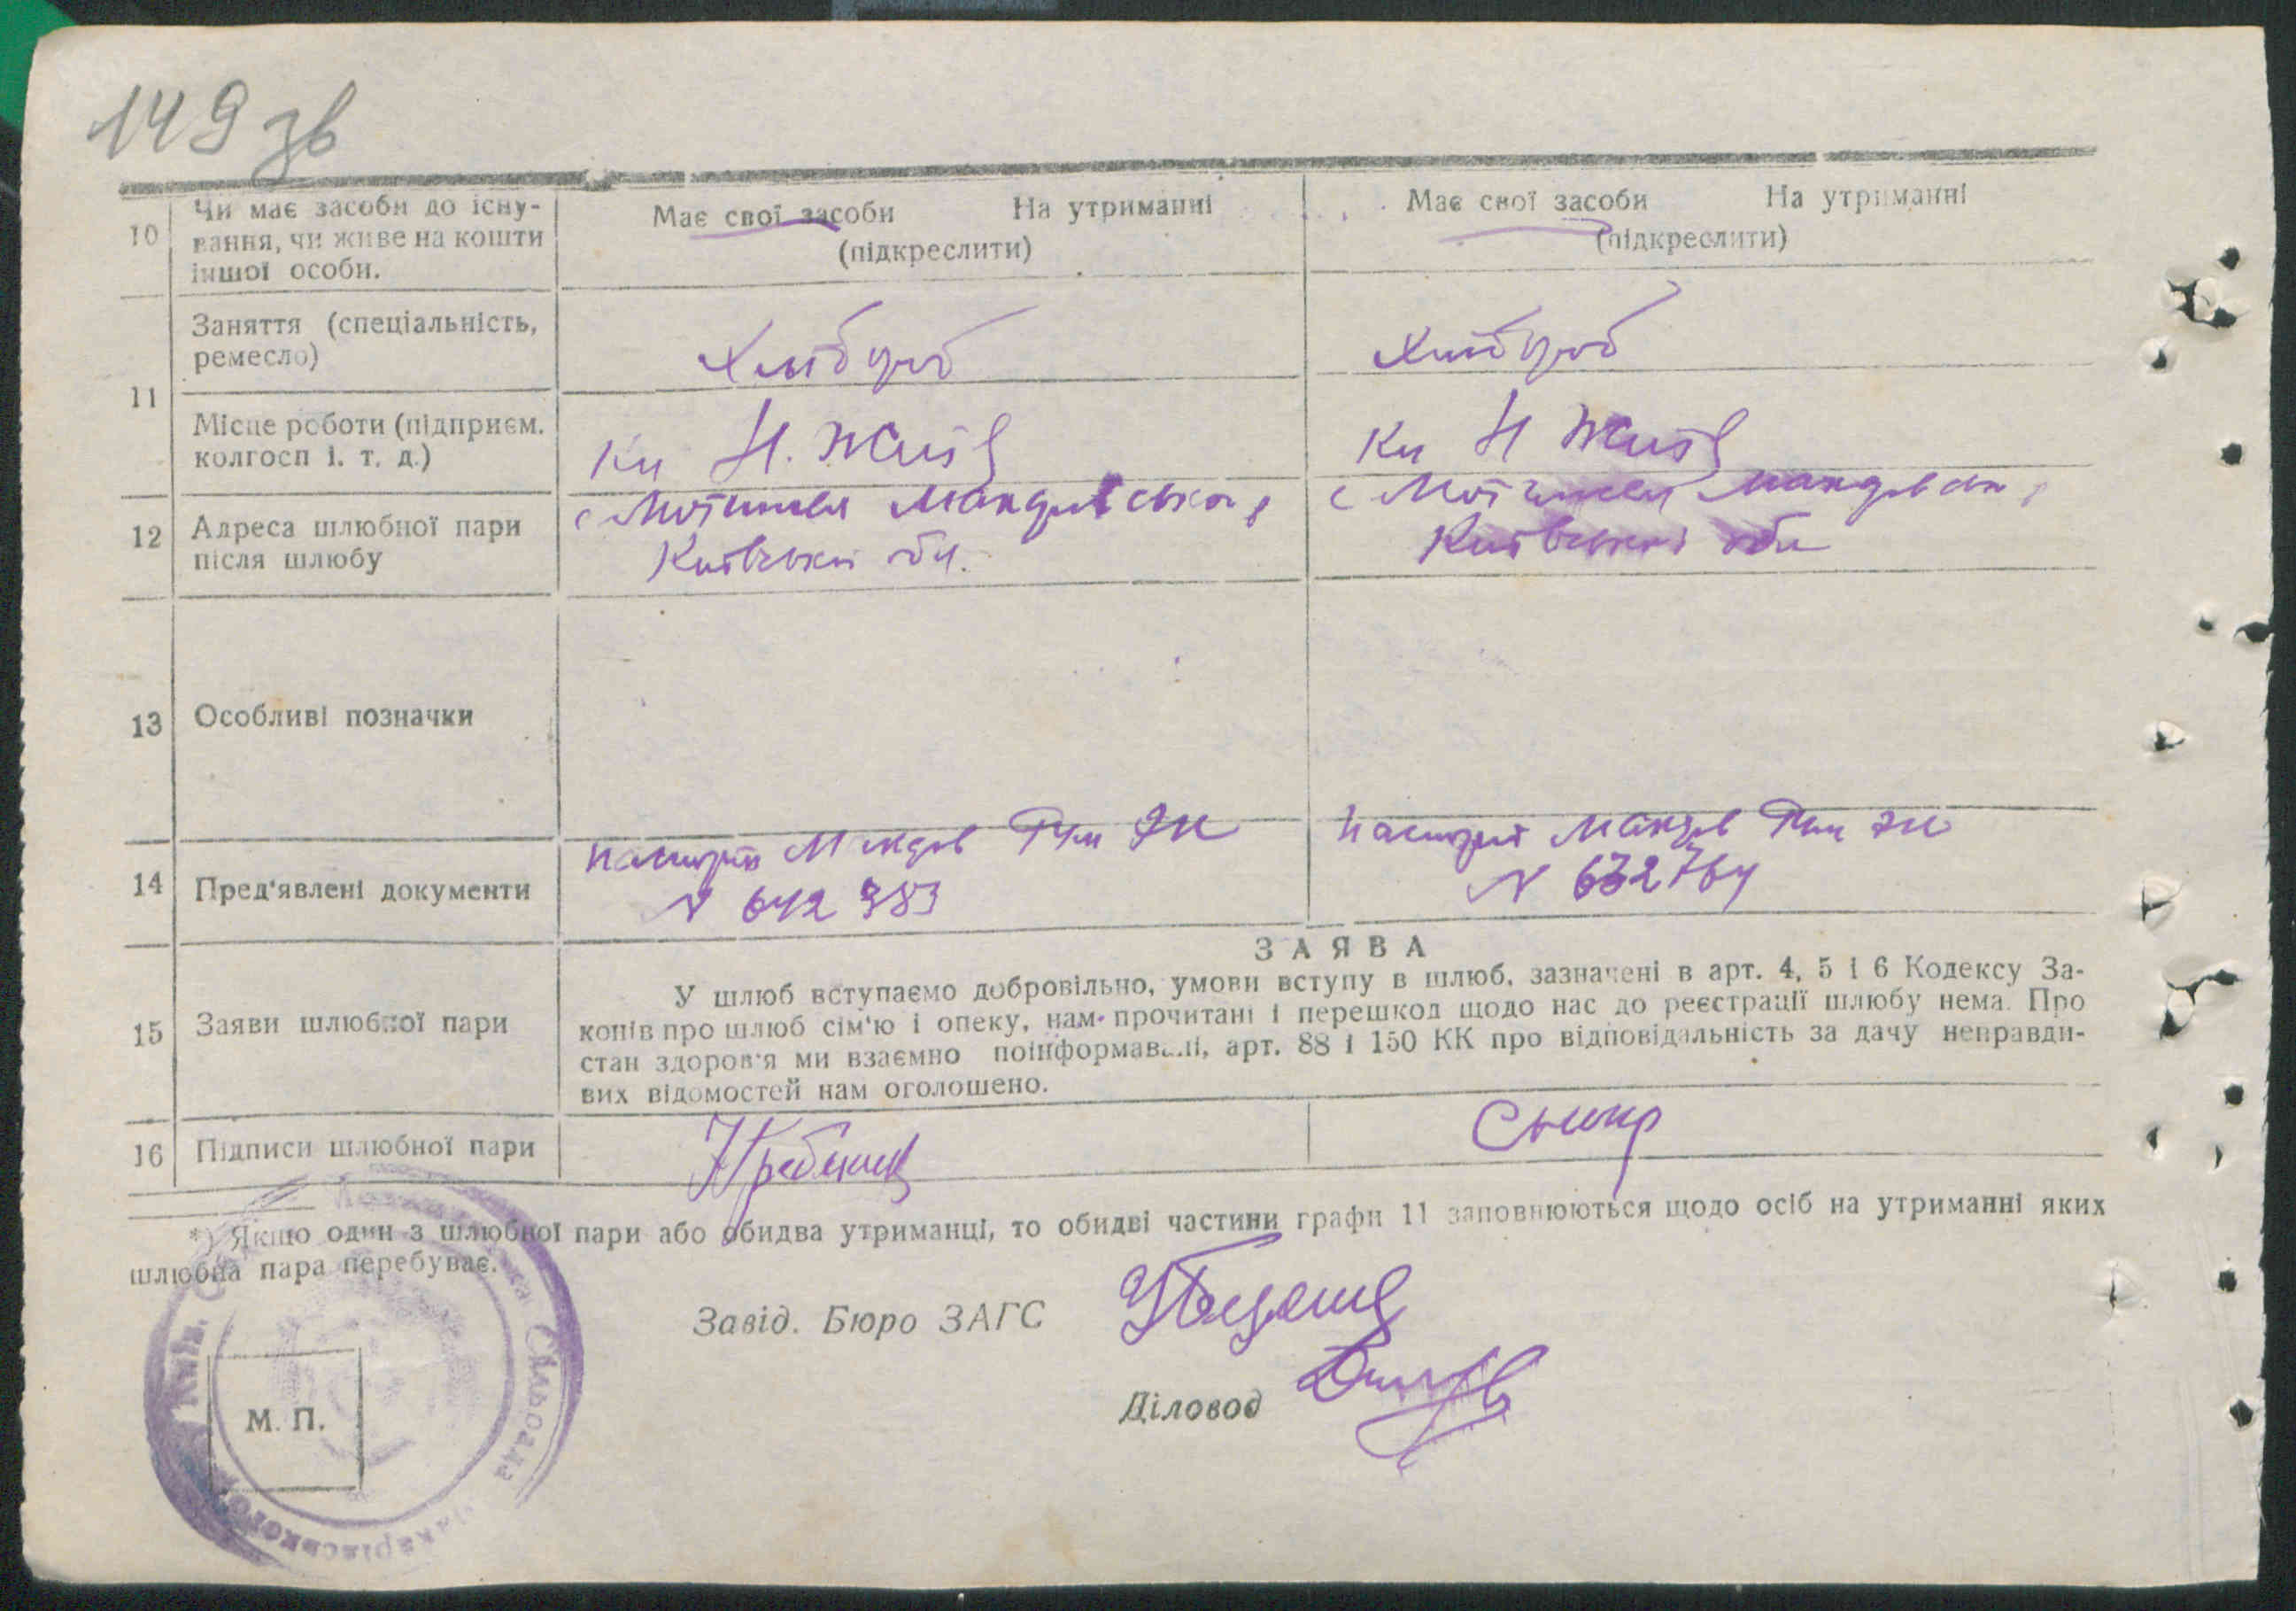 149 зв
10 Чи має засоби до існу-
вання, чи живе на кошти
іншої особи.
Має свої засоби На утриманні
(підкреслити)
Має свої засоби На утриманні
(підкреслити)
11
Заняття (спеціальність,
ремесло)
Хлібороб
Хлібороб
Місце роботи (підприєм.
колгосп і. т. д.)
Н. Життя
Н Життя
12 Адреса шлюбної пари
після шлюбу
с Мотижин
Київської обл.
с Мотижин
Київської обл
13 Особливі позначки
14 Пред'явлені документи
паспорт
N 642 383
паспорт
N 632764
15 Заяви шлюбної пари
ЗАЯВА
У шлюб вступаємо добровільно, умови вступу в шлюб, зазначені в арт. 4, 5 і 6 Кодексу За-
конів про шлюб сім'ю і опеку, нам прочитані і перешкод щодо нас до реєстрації шлюбу нема. Про
стан здоров'я ми взаємно поінформавалі, арт. 88 і 150 КК про відповідальність за дачу неправди-
вих відомостей нам оголошено.
16 Підписи шлюбної пари
*) Якщо один з шлюбної пари або обидва утриманці, то обидві частини графи 11 заповнюються щодо осіб на утриманні яких
шлюбна пара перебуває.
Завід. Бюро ЗАГС
Діловод
М. П.
Сільрада
Макарівського